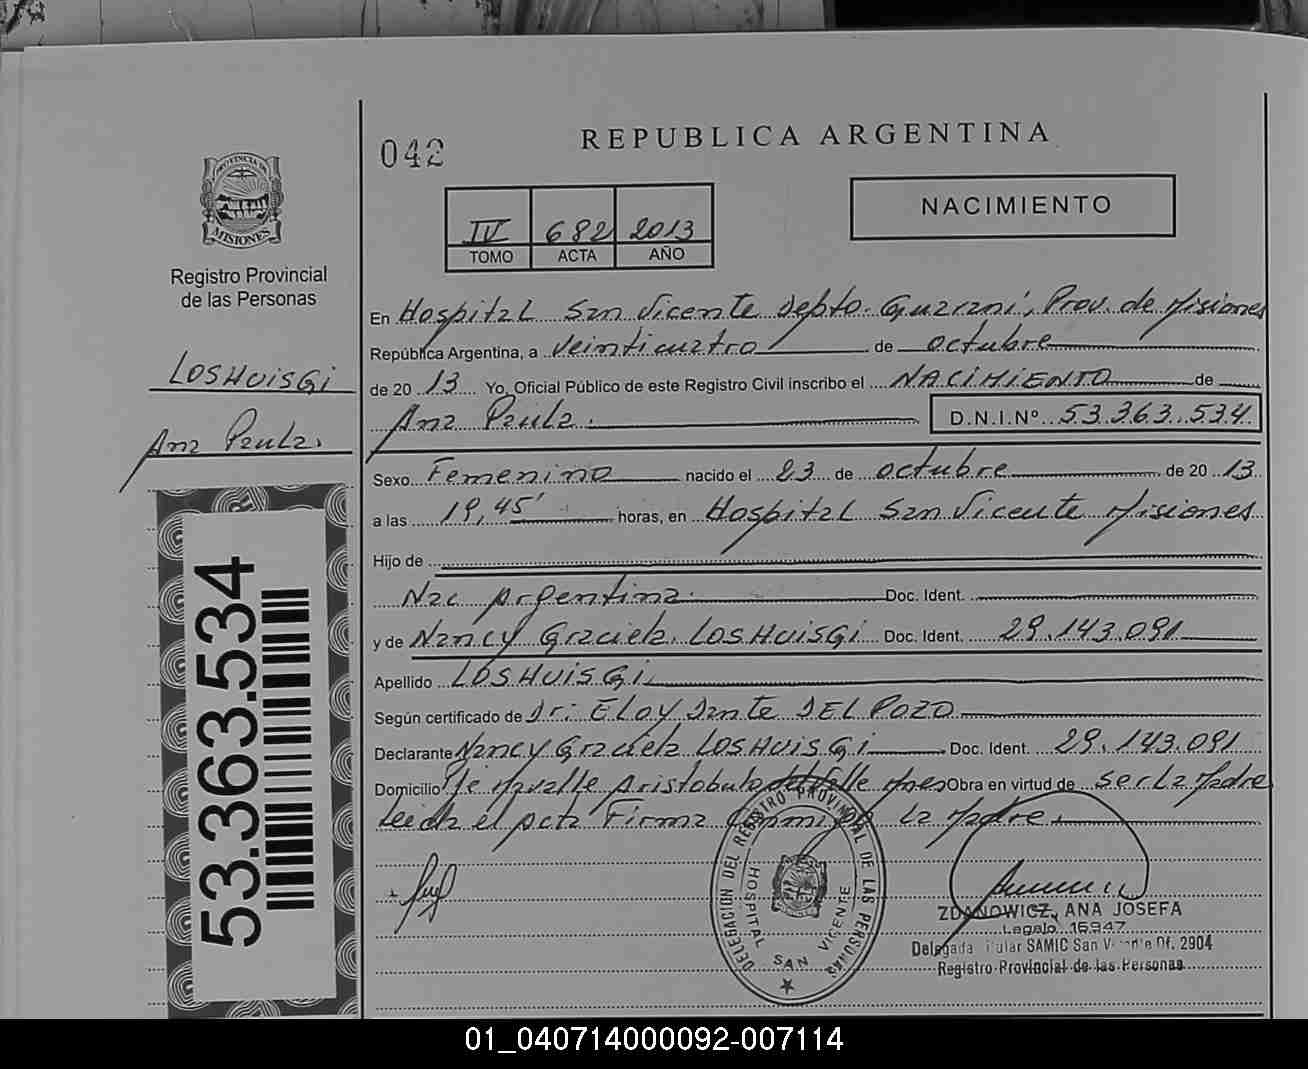 042
REPUBLICA ARGENTINA
PROVINCIA DE
MISIONES
Registro Provincial
de las Personas
IV 682 2013
TOMO ACTA AÑO
NACIMIENTO
En Hospital San Vicente Depto. Guaraní, Prov. de Misiones
República Argentina, a veinticuatro de octubre
de 20 13 Yo, Oficial Público de este Registro Civil inscribo el NACIMIENTO de
LOSHUISGI
Ana Paula.
Ana Paula. D.N.I.Nº 53.363.534
Sexo Femenino nacido el 23 de octubre de 20 13
a las 19,45' horas, en Hospital San Vicente Misiones
Hijo de
Nac Argentina. Doc. Ident.
y de Nancy Graciela LOSHUISGI Doc. Ident. 29.143.091
Apellido LOSHUISGI
Según certificado de Dr: ELOY Dante DEL POZO
Declarante Nancy Graciela LOSHUISGI Doc. Ident. 29.143.091
Domicilio Aristobulo del Valle Mnes Obra en virtud de ser La Madre
Leida el acta Firma Conmigo La Madre.
53.363.534
DELEGACION DEL REGISTRO PROVINCIAL DE LAS PERSONAS
HOSPITAL SAN VICENTE
ZDANOWICZ, ANA JOSEFA
Legajo 16947
Delegada Titular SAMIC San Vicente Of. 2904
Registro Provincial de las Personas
01_040714000092-007114